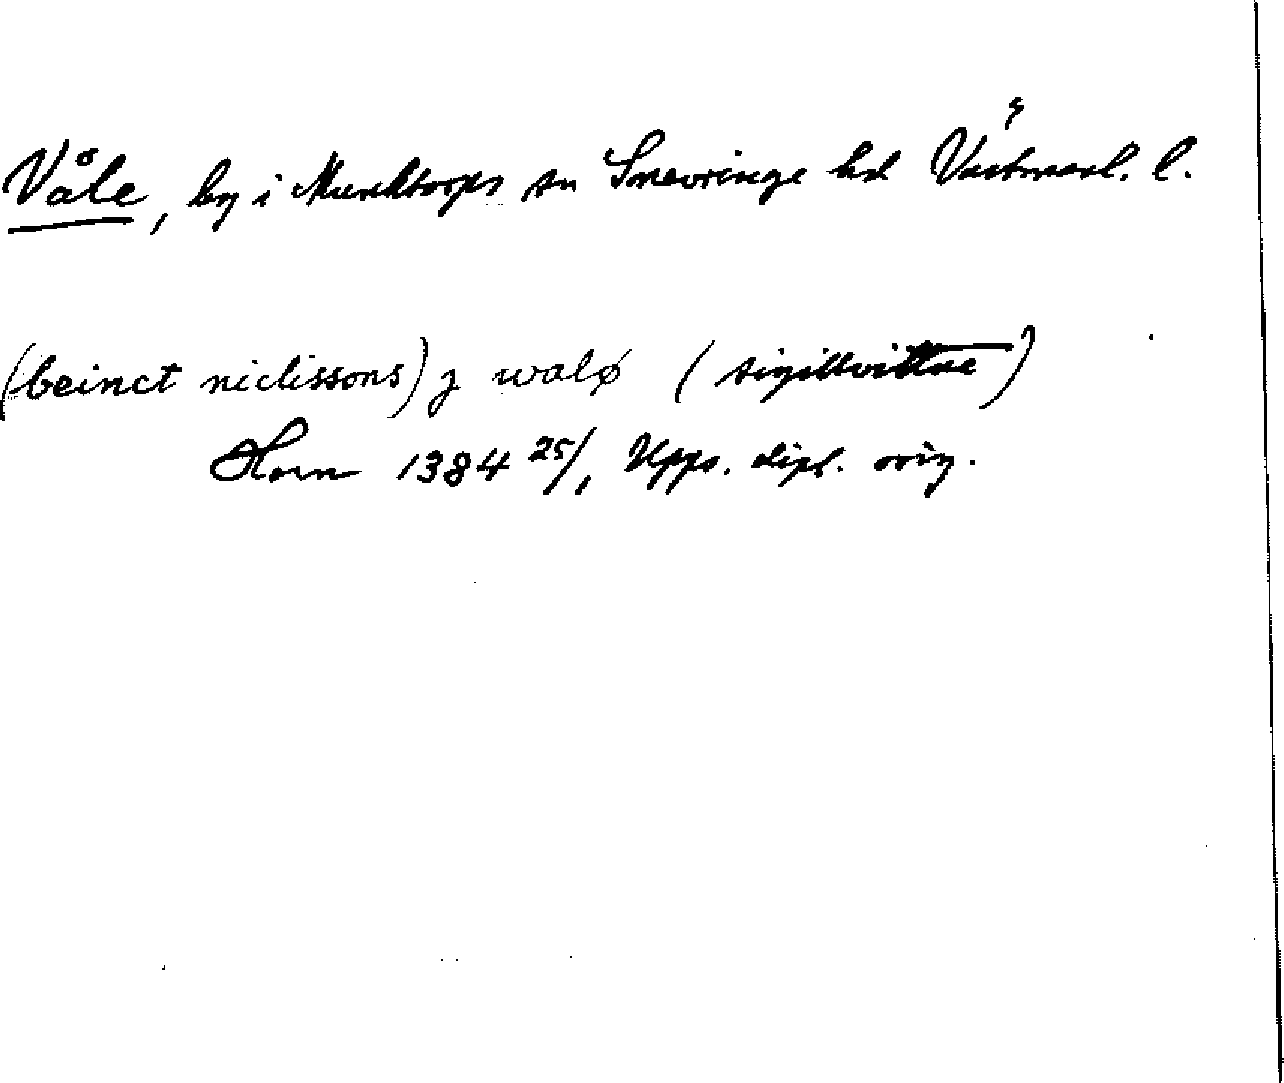 Våle, by i Munktorps sn Snevringe hd Västmanl. l.
(beinct niclissons) j walø (sigillvittne)
Horn 1384 25/1 Upps. dipl. orig.